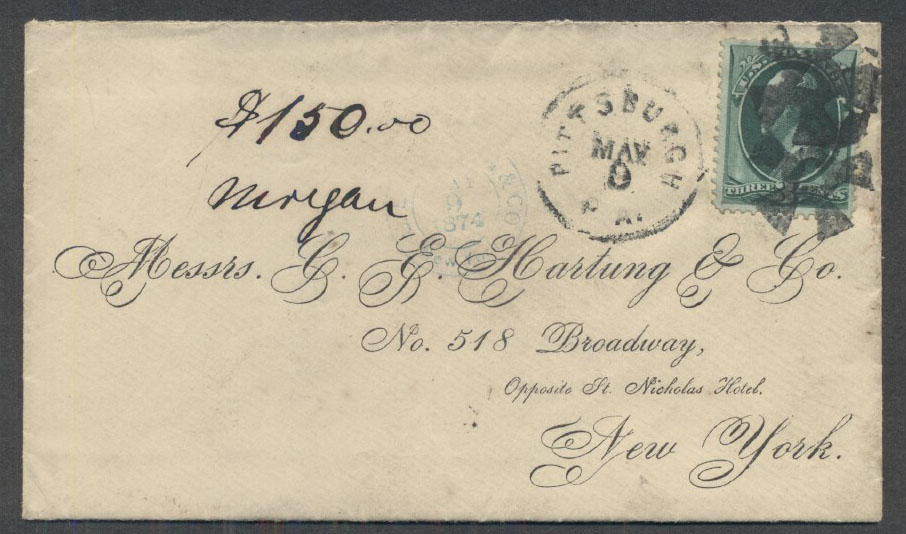 $150.00
Morgan
PITTSBURGH
MAY
9
PA.
U.S.
THREE CENTS
& CO
9
1874
Messrs. G. E. Hartung & Co.
No. 518 Broadway,
Opposite St. Nicholas Hotel.
New York.